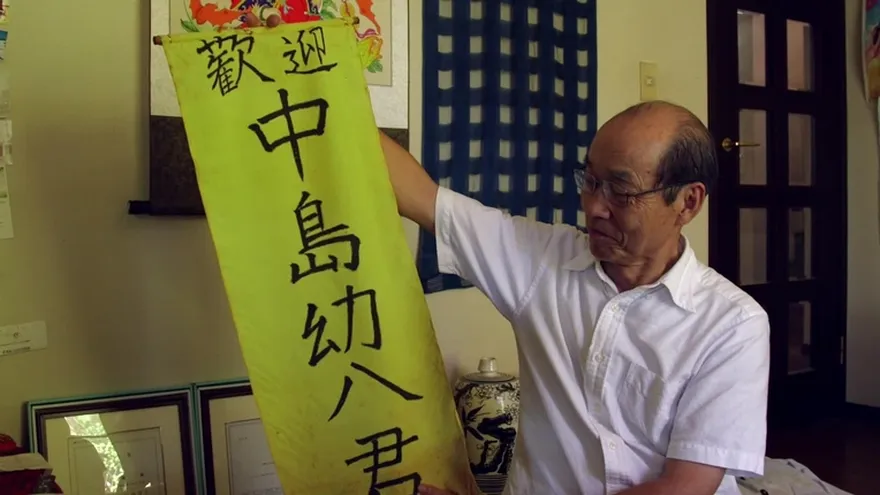 歡迎
中島幼八君